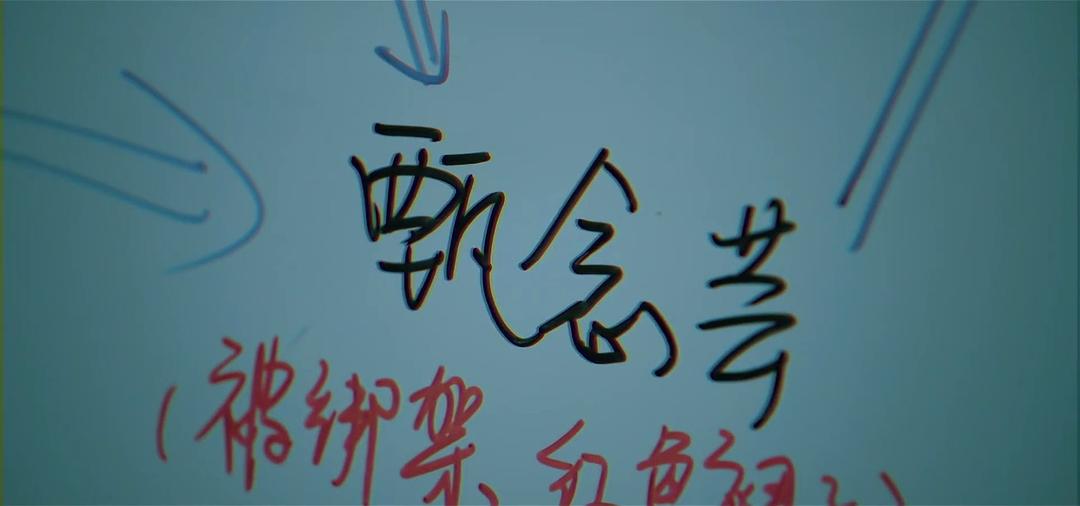 甄念芸
(被绑架、红色